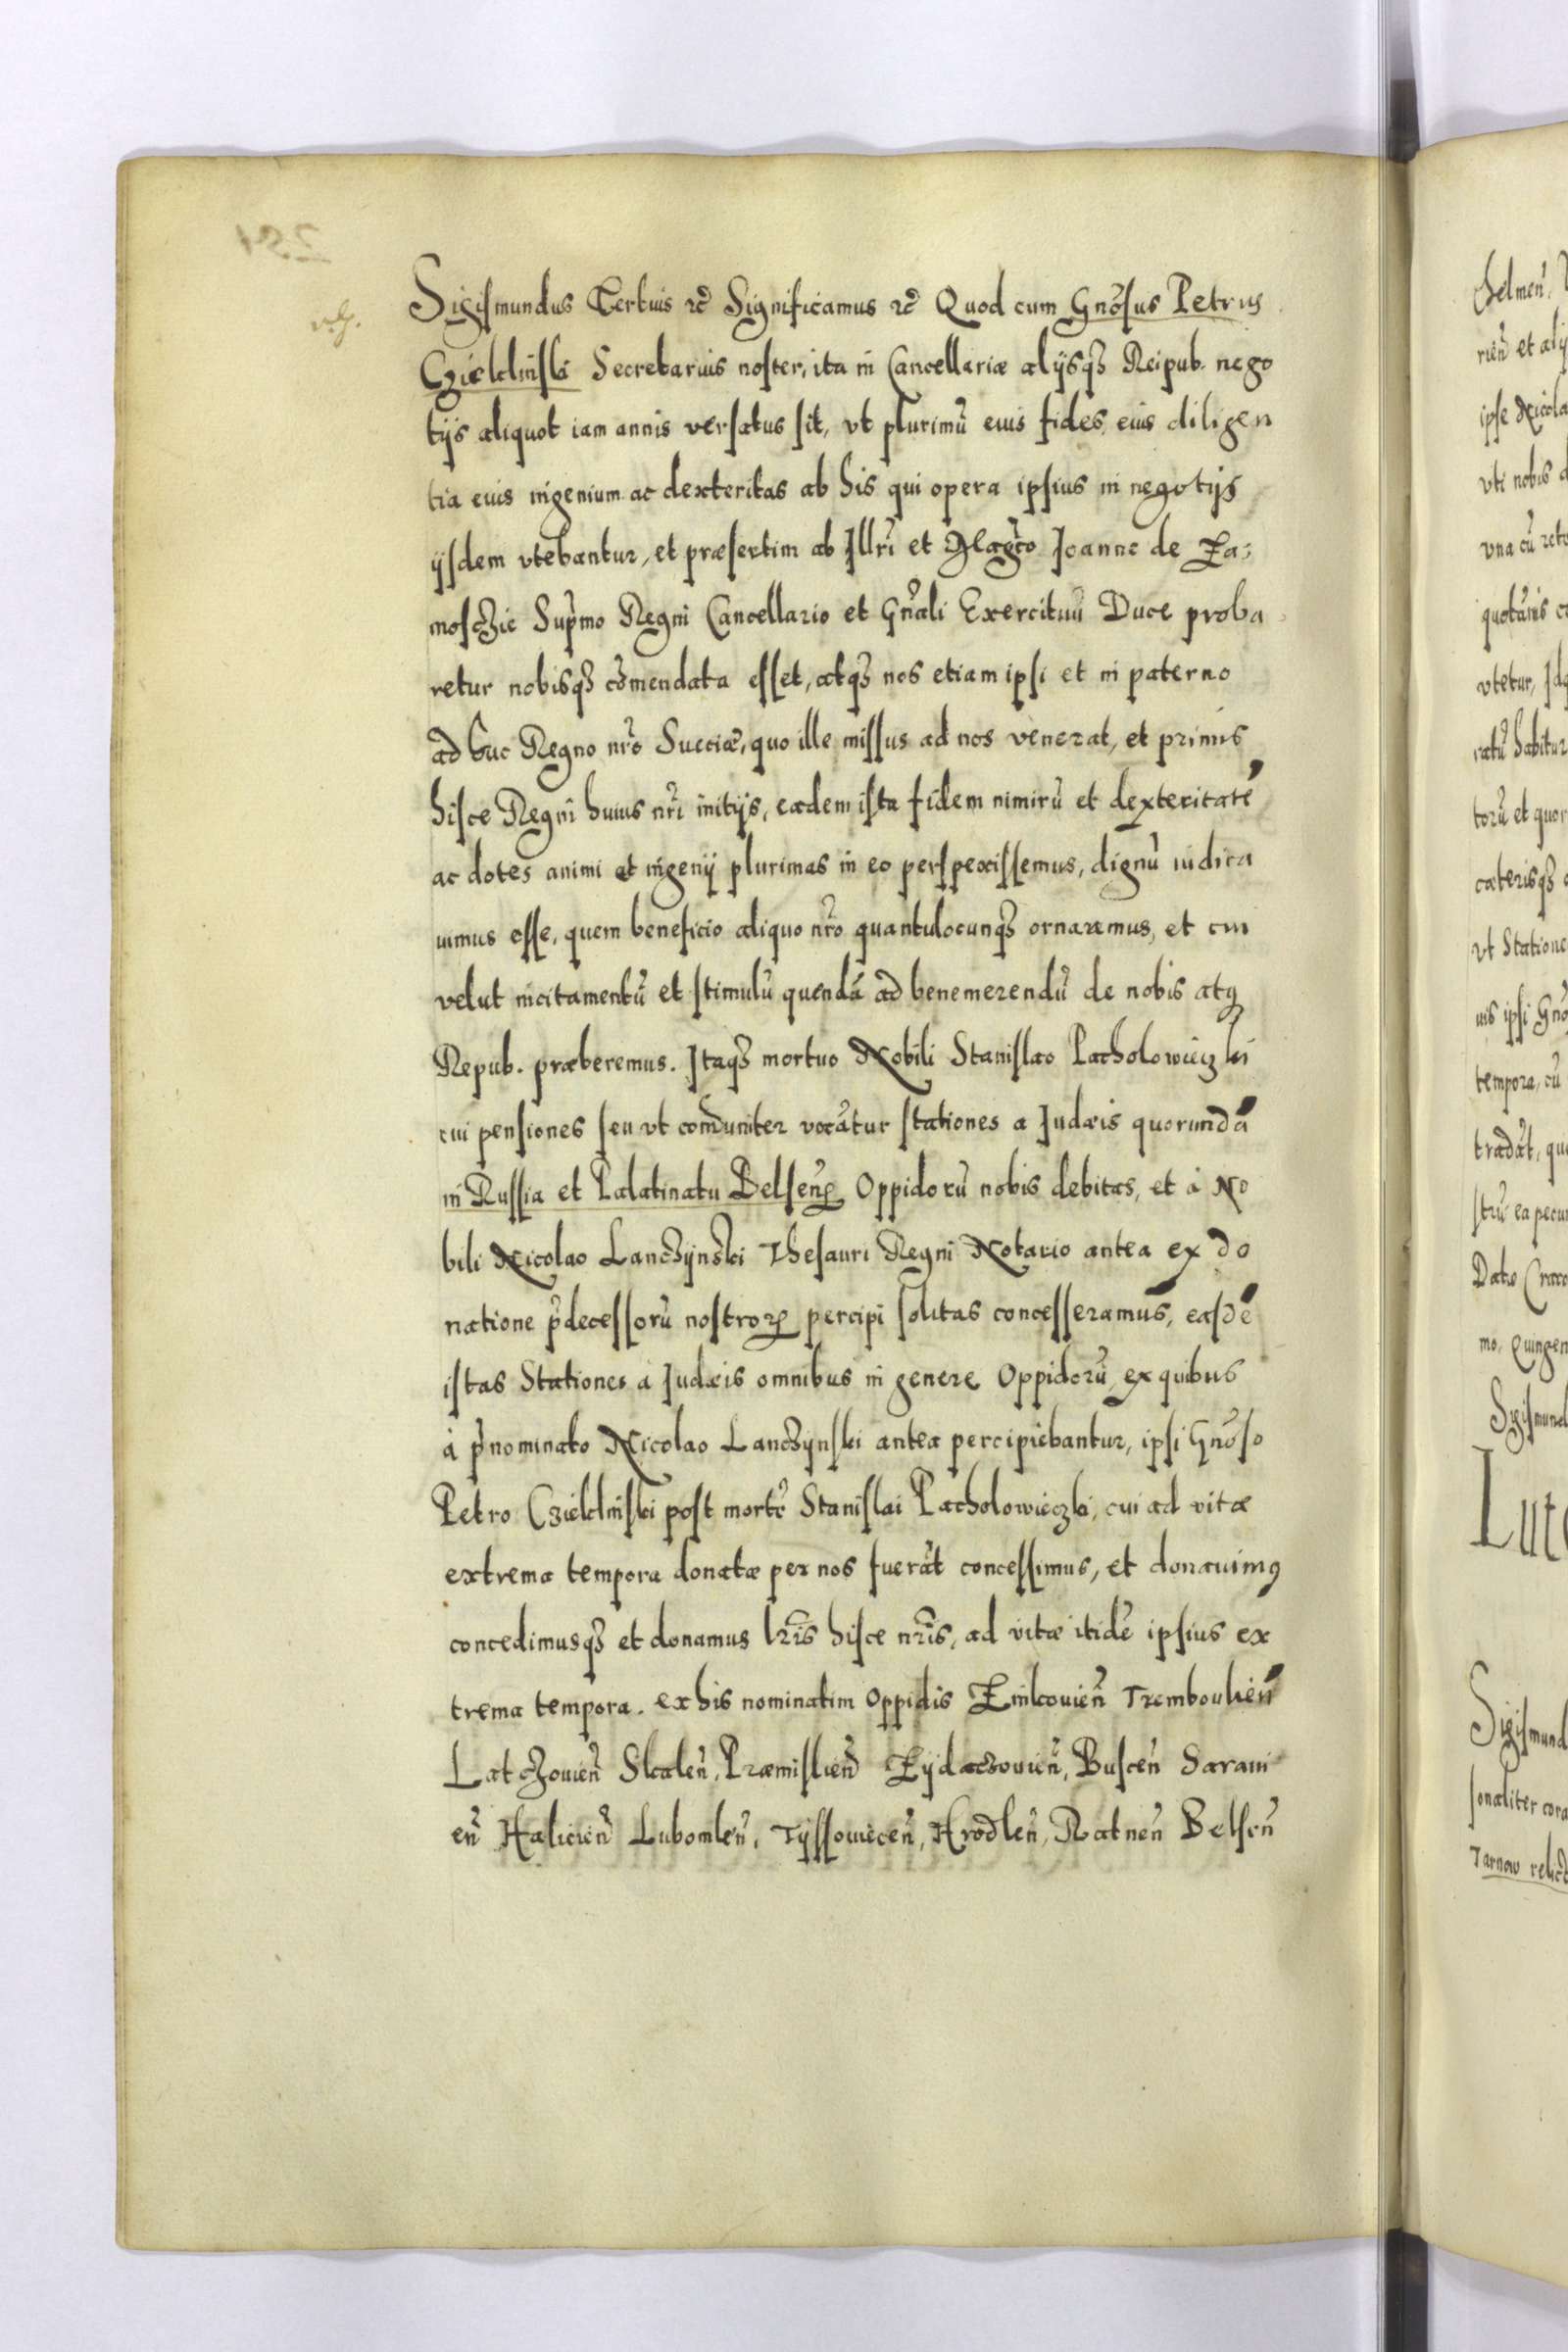 Sigismundus Tertius etc Significamus etc Quod cum Gnosus Petrus
Czieklinski Secretarius noster, ita in Cancellariæ alijsqȝ Reipub. nego
tijs aliquot iam annis versatus sit, vt plurimū eius fides, eius diligen
tia eius ingenium ac dexteritas ab his qui opera ipsius in negotijs
ijsdem vtebantur, et præsertim ab Illri et Magco Ioanne de Za-
moschie Supmo Regni Cancellario et Gnali Exercituū Duce proba
retur nobisqȝ cōmendata esset, atqȝ nos etiam ipsi et in paterno
ad huc Regno nro Sueciæ, quo ille missus ad nos venerat, et primis
hisce Regni huius nri initijs, eadem ista fidem nimirū et dexteritatē
ac dotes animi et ingenij plurimas in eo perspexissemus, dignū iudica
uimus esse, quem beneficio aliquo nro quantulocunqȝ ornaremus, et cui
velut incitamentū et stimulū quendā ad benemerendū de nobis atqȝ
Repub. præberemus. Itaqȝ mortuo Nobili Stanislao Pacholowieczki
cui pensiones seu vt comuniter vocātur stationes a Iudæis quorundā
in Russia et Palatinatu Belsen Oppidorū nobis debitas, et à No
bili Nicolao Lanczynski Thesauri Regni Notario antea ex do
natione pdecessorū nostrorꝝ percipi solitas concesseramus, easdē
istas Stationes à Iudæis omnibus in genere Oppidorū ex quibus
à pnominato Nicolao Lanczynski antea percipiebantur, ipsi Gnoso
Petro Czieklinski post mortē Stanislai Pacholowieczki, cui ad vitæ
extrema tempora donatæ per nos fuerāt concessimus, et donauimꝰ
concedimusqȝ et donamus lris hisce nris, ad vitæ itidē ipsius ex
trema tempora. ex his nominatim Oppidis Zinkouien Trembouliēn
Latczouien Skalen, Præmislien Zydaczouien, Buscen Sarani
en Halicien Lubomlen, Tyssouiecen, Hrodlen, Ratnen Belsen